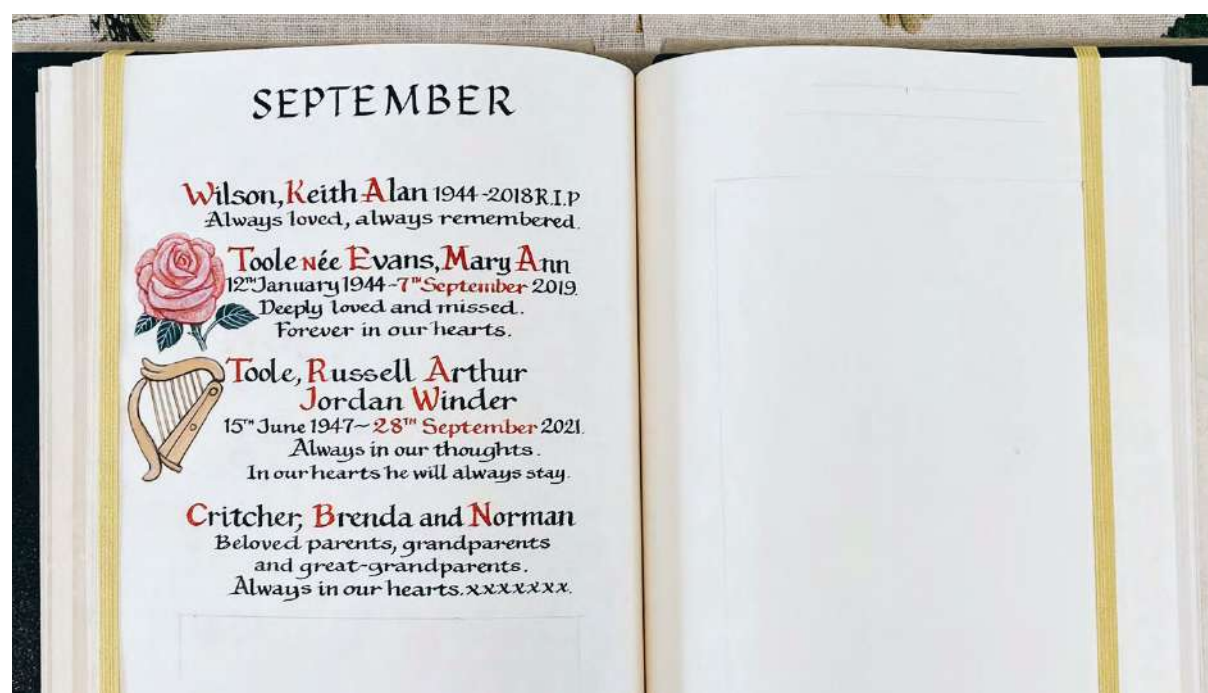 SEPTEMBER
Wilson, Keith Alan 1944-2018 R.I.P
Always loved, always remembered.
Toole née Evans, Mary Ann
12TH January 1944-7TH September 2019.
Deeply loved and missed.
Forever in our hearts.
Toole, Russell Arthur
Jordan Winder
15TH June 1947~28TH September 2021.
Always in our thoughts.
In our hearts he will always stay.
Critcher, Brenda and Norman
Beloved parents, grandparents
and great-grandparents.
Always in our hearts.xxxxxxx.